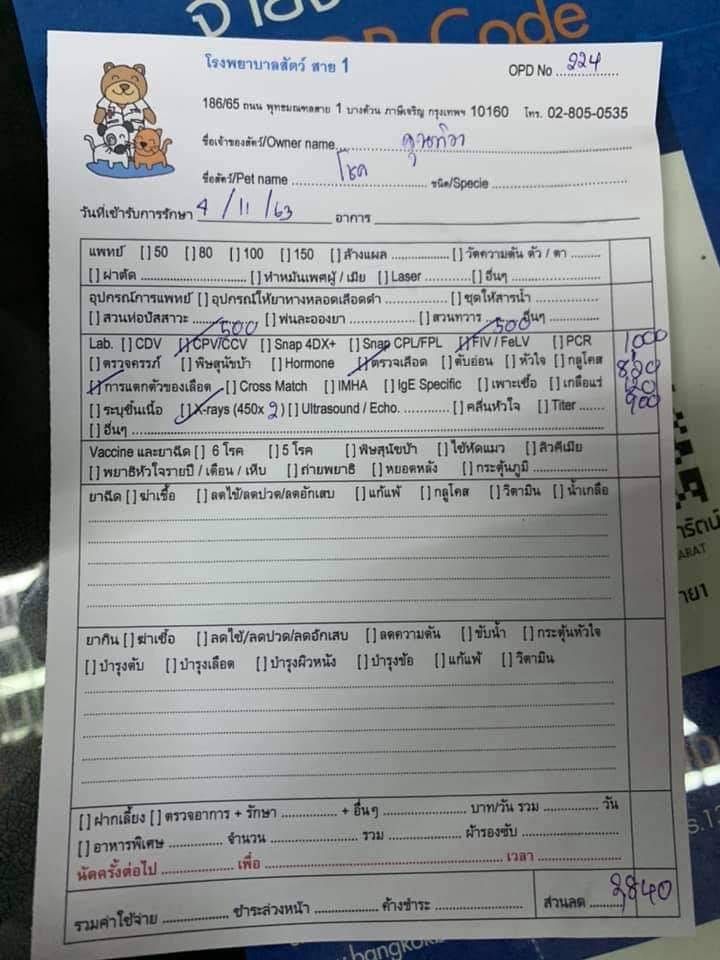 Code
โรงพยาบาลสัตว์ สาย 1
OPD No ............... 224
186/65 ถนน พุทธมณฑลสาย 1 บางด้วน ภาษีเจริญ กรุงเทพฯ 10160 โทร. 02-805-0535
ชื่อเจ้าของสัตว์/Owner name
ชื่อสัตว์/Pet name โชค ชนิด/Specie
วันที่เข้ารับการรักษา 4 / 11 / 63 อาการ
แพทย์ [ ] 50 [ ] 80 [ ] 100 [ ] 150 [ ] ล้างแผล [ ] วัดความดัน ตัว / ตา
[ ] ผ่าตัด [ ] ทำหมันเพศผู้ / เมีย [ ] Laser [ ] อื่นๆ
อุปกรณ์การแพทย์ [ ] อุปกรณ์ให้ยาทางหลอดเลือดดำ [ ] ชุดให้สารน้ำ
[ ] สวนท่อปัสสาวะ [ ] พ่นละอองยา [ ] สวนทวาร อื่นๆ
500 500
Lab. [ ] CDV [ ] CPV/CCV [ ] Snap 4DX+ [ ] Snap CPL/FPL [ ] FIV / FeLV [ ] PCR 1,000
[ ] ตรวจครรภ์ [ ] พิษสุนัขบ้า [ ] Hormone [ ] ตรวจเลือด [ ] ตับอ่อน [ ] หัวใจ [ ] กลูโคส
[ ] การแตกตัวของเลือด [ ] Cross Match [ ] IMHA [ ] IgE Specific [ ] เพาะเชื้อ [ ] เกลือแร่
[ ] ระบุชิ้นเนื้อ [ ] X-rays (450x 2 ) [ ] Ultrasound / Echo. [ ] คลื่นหัวใจ [ ] Titer 900
[ ] อื่นๆ
Vaccine และยาฉีด [ ] 6 โรค [ ] 5 โรค [ ] พิษสุนัขบ้า [ ] ไข้หัดแมว [ ] ลิวคีเมีย
[ ] พยาธิหัวใจรายปี / เดือน / เห็บ [ ] ถ่ายพยาธิ [ ] หยอดหลัง [ ] กระตุ้นภูมิ
ยาฉีด [ ] ฆ่าเชื้อ [ ] ลดไข้/ลดปวด/ลดอักเสบ [ ] แก้แพ้ [ ] กลูโคส [ ] วิตามิน [ ] น้ำเกลือ
ยากิน [ ] ฆ่าเชื้อ [ ] ลดไข้/ลดปวด/ลดอักเสบ [ ] ลดความดัน [ ] ขับน้ำ [ ] กระตุ้นหัวใจ
[ ] บำรุงตับ [ ] บำรุงเลือด [ ] บำรุงผิวหนัง [ ] บำรุงข้อ [ ] แก้แพ้ [ ] วิตามิน
[ ] ฝากเลี้ยง [ ] ตรวจอาการ + รักษา + อื่นๆ บาท/วัน รวม วัน
[ ] อาหารพิเศษ จำนวน รวม ผ้ารองซับ
นัดครั้งต่อไป เพื่อ เวลา
รวมค่าใช้จ่าย ชำระล่วงหน้า ค้างชำระ ส่วนลด 2,840